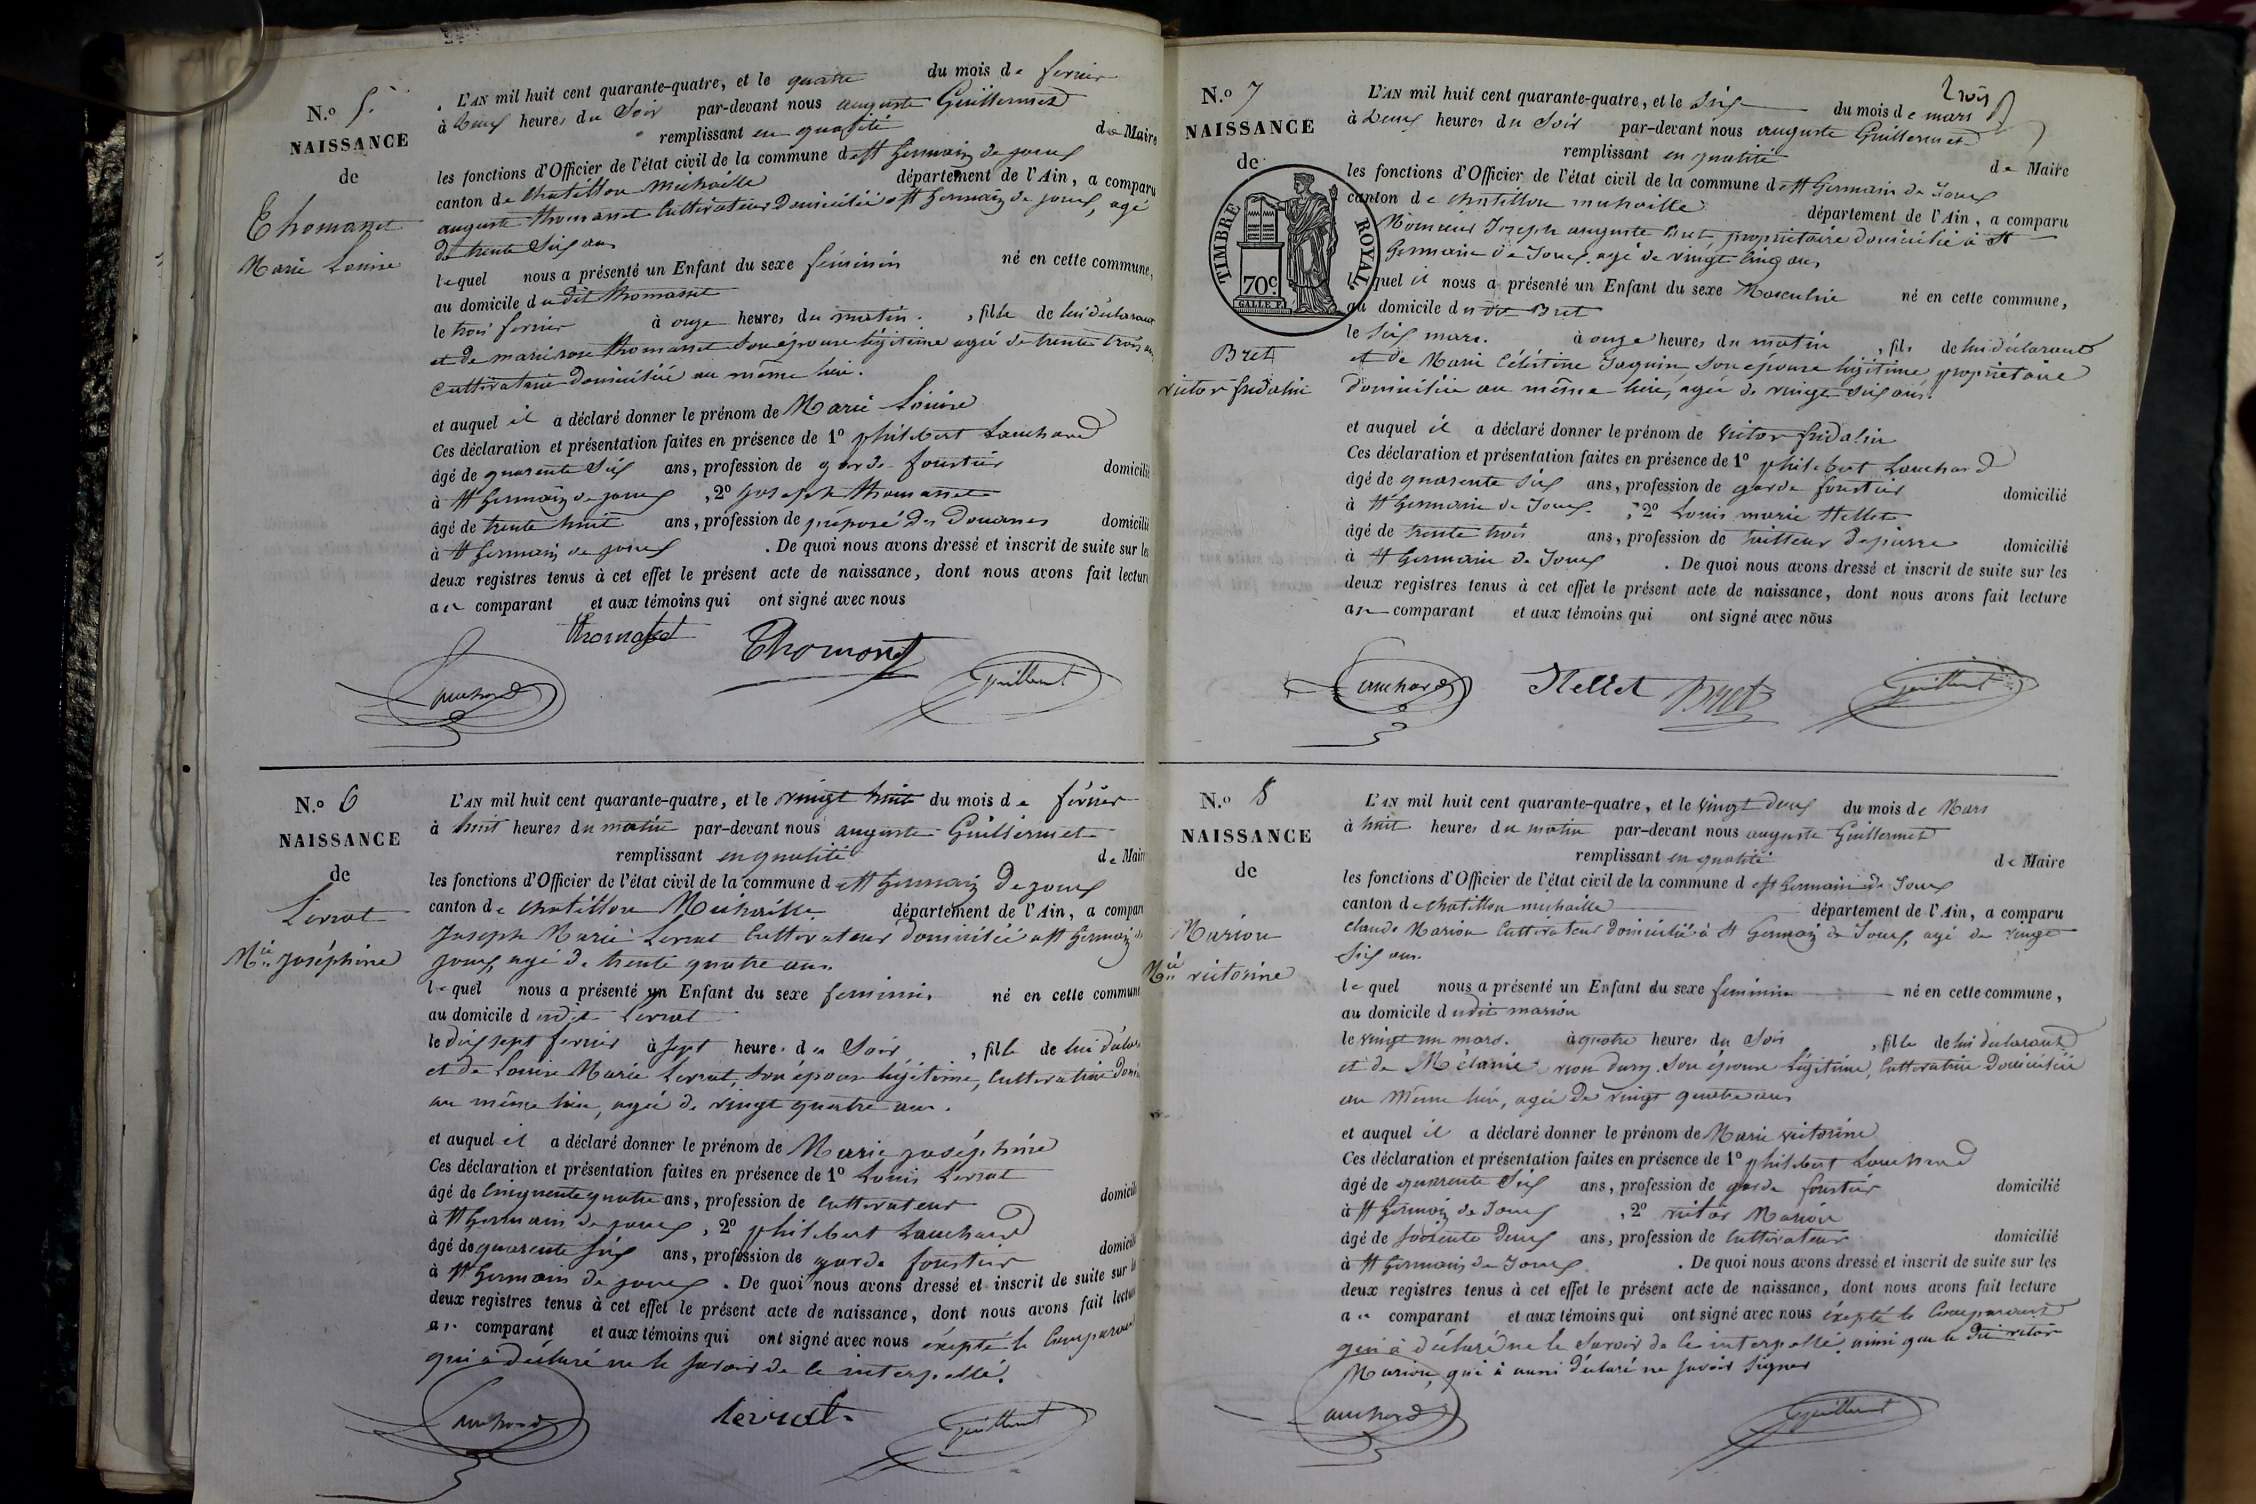 N.o 5.
NAISSANCE
de
Thomasset
Marie Louise
L'AN mil huit cent quarante-quatre, et le quatre du mois de fevrier
à Deux heures du Soir par-devant nous auguste Guillermet
remplissant en qualité de Maire
les fonctions d'Officier de l'état civil de la commune de St Germain de joux
canton de Chatillon Michaille département de l'Ain, a comparu
auguste thomasset Cultivateur Domicilié a St Germain de joux, agé
de trente Six ans
lequel nous a présenté un Enfant du sexe féminin né en cette commune,
au domicile du dit thomasset
le trois fevrier à onze heures du matin. , fille de lui déclarant
et de marie rose thomasset Son épouse légitime agée de trente trois ans,
Cultivatrice Domiciliée au même lieu.
et auquel il a déclaré donner le prénom de Marie Louise
Ces déclaration et présentation faites en présence de 1o philibert Lauchard
âgé de quarente Six ans, profession de garde forestier domicilié
à St Germain de joux , 2o joseph thomasset
âgé de trente huit ans, profession de préposé des Douanes domicilié
à St Germain de joux . De quoi nous avons dressé et inscrit de suite sur les
deux registres tenus à cet effet le présent acte de naissance, dont nous avons fait lecture
au comparant et aux témoins qui ont signé avec nous
thomasset
Lauchard
N.o 6
NAISSANCE
de
Levrat
Mie joséphine
L'AN mil huit cent quarante-quatre, et le vingt huit du mois de février
à huit heures du matin par-devant nous auguste Guillermet
remplissant en qualité de Maire
les fonctions d'Officier de l'état civil de la commune de St Germain De joux
canton de Chatillon Michaille département de l'Ain, a comparu
Joseph Marie Levrat Cultivateur domicilié a St Germain de
joux, agé de trente quatre ans.
lequel nous a présenté un Enfant du sexe feminin. né en cette commune
au domicile dudit Levrat
le dix sept fevrier à sept heures du Soir , fille de lui déclarant
et de Louise Marie Levrat, Son épouse légitime, Cultivatrice
au même lieu, agée de vingt quatre ans.
et auquel il a déclaré donner le prénom de Marie joséphine
Ces déclaration et présentation faites en présence de 1o Louis Levrat
âgé de Cinquente quatre ans, profession de Cultivateur domicilié
à St Germain de joux , 2o philibert Lauchard
âgé de quarente Six ans, profession de garde forestier domicilié
à St Germain de joux . De quoi nous avons dressé et inscrit de suite sur les
deux registres tenus à cet effet le présent acte de naissance, dont nous avons fait lecture
au comparant et aux témoins qui ont signé avec nous éxepté le Comparant
qui à déclaré ne le savoir de ce interpellé.
Lauchard levrat
N.o 7
NAISSANCE
de
TIMBRE ROYAL
70c
Bret
victor fridolin
trois
L'AN mil huit cent quarante-quatre, et le Six du mois de mars
à Deux heures du Soir par-devant nous auguste Guillermet
remplissant en qualité de Maire
les fonctions d'Officier de l'état civil de la commune de St Germain de Joux
canton de Chatillon michaille département de l'Ain, a comparu
Monsieur Joseph auguste Bret, propriétaire domicilié à St
Germain de Joux, agé de vingt Cinq ans,
lequel il nous a présenté un Enfant du sexe Masculin né en cette commune,
au domicile du dit Bret
le Six mars. à onze heures du matin , fils de lui déclarant
et de Marie Célestine Jaquin, Son épouse légitime propriétaire
domiciliée au même lieu, agée de vingt Six ans.
et auquel il a déclaré donner le prénom de victor fridolin
Ces déclaration et présentation faites en présence de 1o philibert Lauchard
âgé de quarente Six ans, profession de garde forestier domicilié
à St Germain de Joux. , 2o Louis marie Hellet
âgé de trente trois ans, profession de tailleur de pierre domicilié
à St Germain de Joux . De quoi nous avons dressé et inscrit de suite sur les
deux registres tenus à cet effet le présent acte de naissance, dont nous avons fait lecture
au comparant et aux témoins qui ont signé avec nous
Lauchard Hellet Bret
N.o 8
NAISSANCE
de
Marion
Mie victorine
L'AN mil huit cent quarante-quatre, et le vingt deux du mois de Mars
à huit heures du matin par-devant nous auguste Guillermet
remplissant en qualité de Maire
les fonctions d'Officier de l'état civil de la commune de St Germain de Joux
canton de Chatillon michaille département de l'Ain, a comparu
Claude Marion Cultivateur domicilié à St Germain de Joux, agé de vingt
Six ans.
lequel nous a présenté un Enfant du sexe feminin né en cette commune,
au domicile dudit marion
le vingt un mars. à quatre heures du Soir , fille de lui déclarant
et de Mélanie Son épouse Légitime, Cultivatrice Domiciliée
au même lieu, agée de vingt quatre ans
et auquel il a déclaré donner le prénom de Marie victorine
Ces déclaration et présentation faites en présence de 1o philibert Lauchard
âgé de quarente Six ans, profession de garde forestier domicilié
à St Germain de Joux , 2o victor Marion
âgé de Soixente deux ans, profession de Cultivateur domicilié
à St Germain de Joux . De quoi nous avons dressé et inscrit de suite sur les
deux registres tenus à cet effet le présent acte de naissance, dont nous avons fait lecture
au comparant et aux témoins qui ont signé avec nous éxepté le Comparant
qui à déclaré ne le Savoir de ce interpellé ainsi que le dit victor
Marion, qui à aussi déclaré ne savoir Signer
Lauchard